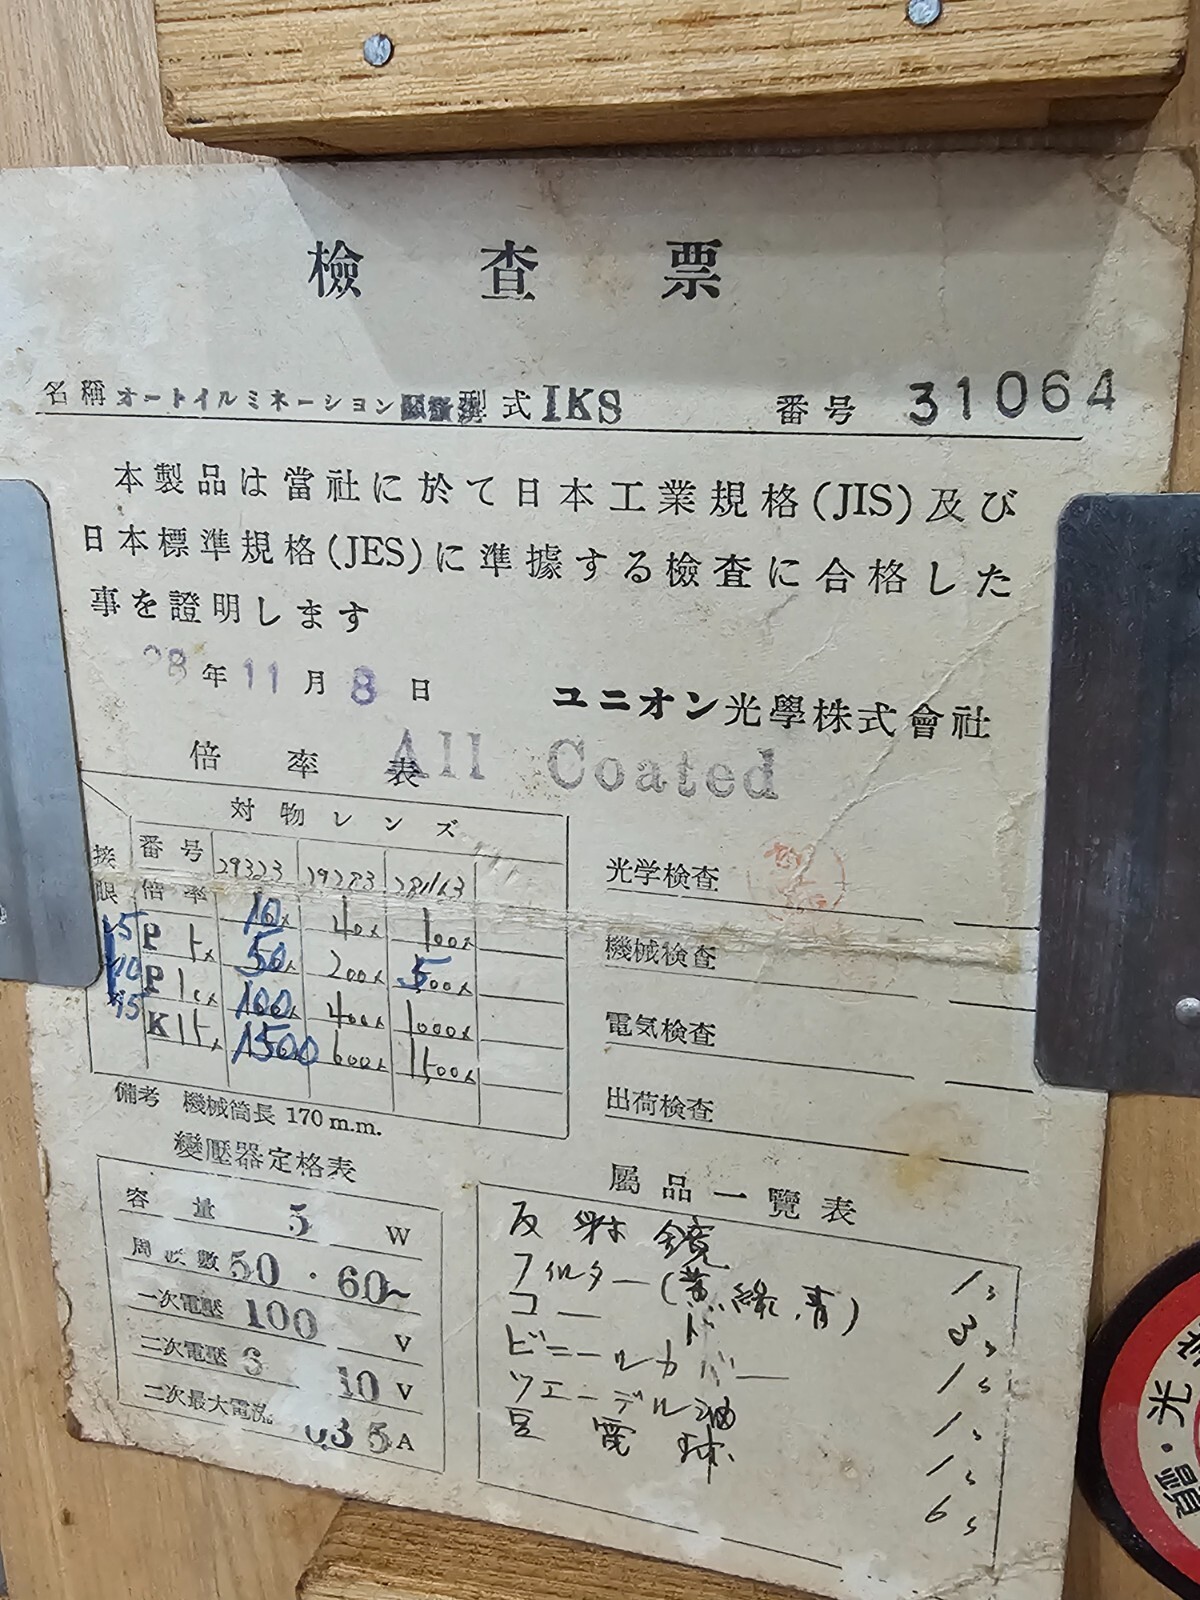 檢査票
名稱 オートイルミネーション 型式 IKS 番号 31064
本製品は當社に於て日本工業規格(JIS)及び
日本標準規格(JES)に準據する檢査に合格した
事を證明します
28年11月8日
ユニオン光學株式會社
倍率表 All Coated
対物レンズ
接眼 番号 29323 29283
倍率 10x 40x 100x
5 P 5x 50x 200x 500x
10 P 10x 100x 400x 1000x
15 K 15x 1500 600x 1500x
備考 機械筒長 170 m.m.
光学検査
機械検査
電気検査
出荷検査
變壓器定格表
容量 5 W
周波數 50・60~
一次電壓 100 V
二次電壓 6 10 V
二次最大電流 035 A
屬品一覽表
反射鏡 1
フィルター(黄、緑、青) 3
コード 1
ビニールカバー 1
ツエーデル油 1
豆電球 6
光